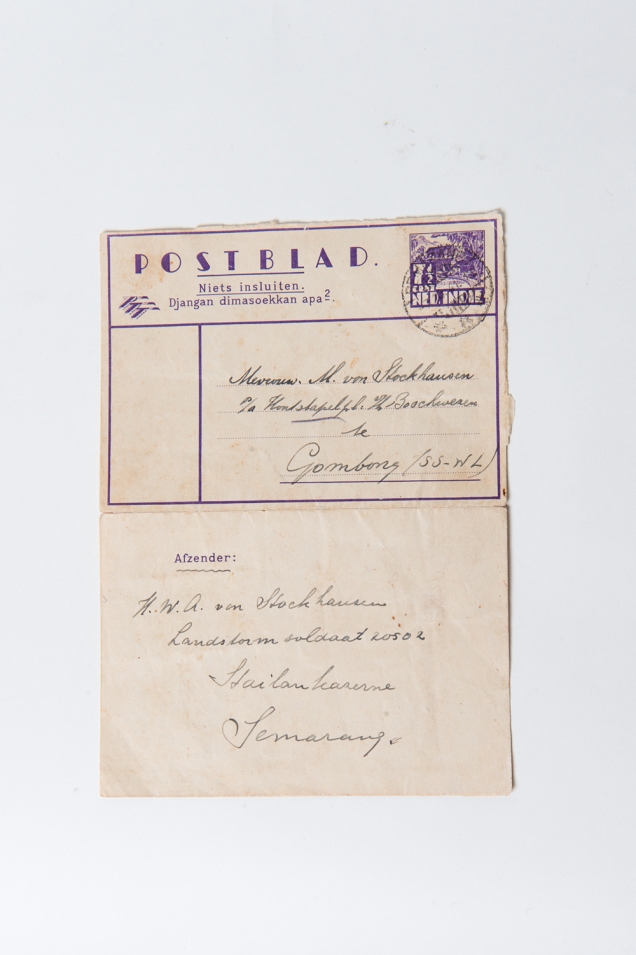 POSTBLAD.
Niets insluiten.
PTT
Djangan dimasoekkan apa2.
NED. INDIE
Mevrouw. M. von Stockhausen
p/a Houtstapelpl. Boschwezen
te
Gombong (SS-WL)
Afzender:
H.W.A. von Stockhausen
Landstorm soldaat 20502
Semarang.